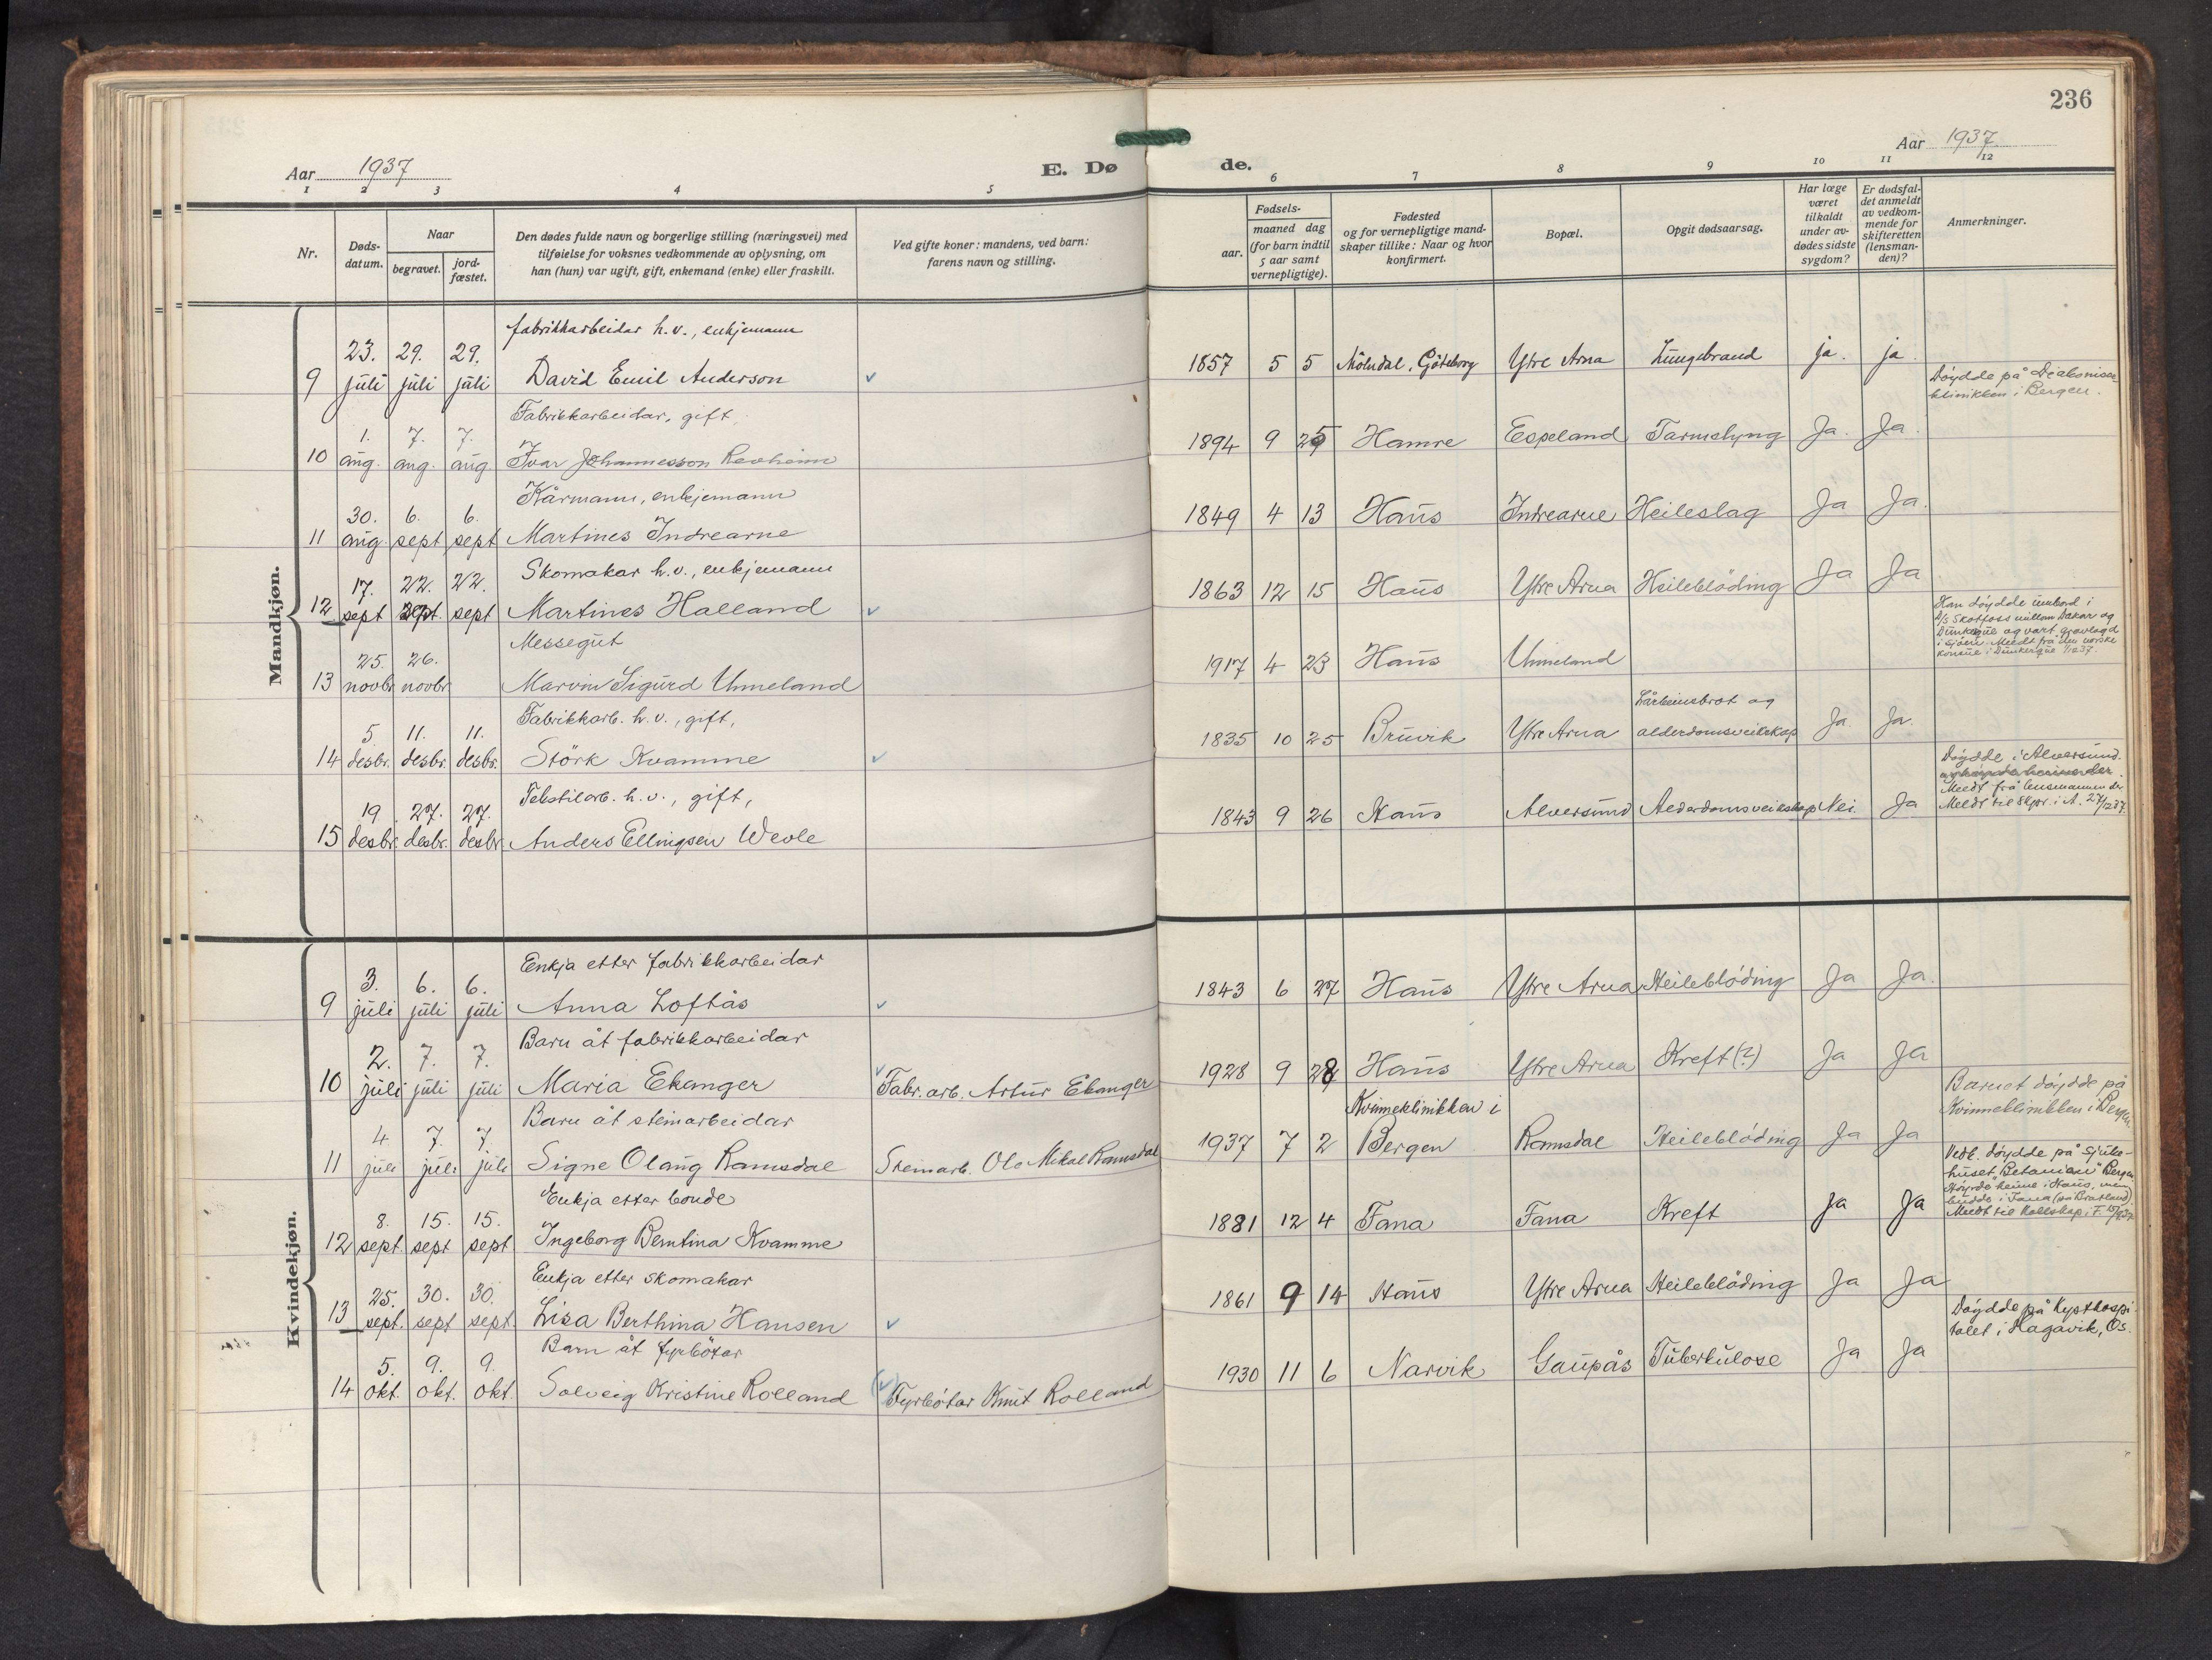 236
Aar 1937
E. Dø
de.
Aar 1937
1 2 3 4 5 6 7 8 9 10 11 12
Nr.
Døds-
datum.
Naar
begravet.
jord-
fæstet.
Den dødes fulde navn og borgerlige stilling (næringsvei) med
tilføielse for voksnes vedkommende av oplysning, om
han (hun) var ugift, gift, enkemand (enke) eller fraskilt.
Ved gifte koner: mandens, ved barn:
farens navn og stilling.
Fødsels-
aar.
maaned dag
(for barn indtil
5 aar samt
vernepligtige).
Fødested
og for vernepligtige mand-
skaper tillike: Naar og hvor
konfirmert.
Bopæl.
Opgit dødsaarsag.
Har læge
været
tilkaldt
under av-
dødes sidste
sygdom?
Er dødsfal-
det anmeldt
av vedkom-
mende for
skifteretten
(lensman-
den)?
Anmerkninger.
Mandkjøn.
fabrikkarbeidar h.v., enkjemann
23. 29. 29.
9 juli juli juli David Emil Anderson 1857 5 5 Mölndal, Göteborg Ytre Arna Lungebrand ja. ja.
Döydde på Diakonisse-
klinikken i Bergen.
Fabrikkarbeidar, gift,
1. 7. 7.
10 aug. aug. aug Ivar Johannesson Revheim 1894 9 25 Hamre Espeland Tarmslyng Ja. Ja.
Kårmann, enkjemann
30. 6. 6.
11 aug. sept sept Martines Indrearne 1849 4 13 Haus Indrearne Heileslag Ja Ja.
Skomakar h.v., enkjemann
17. 22. 22.
12 sept sept. sept Martines Halland 1863 12 15 Haus Ytre Arna Heileblöding Ja Ja
Messegut
25. 26.
13 novbr. novbr Marvin Sigurd Unneland 1917 4 23 Haus Unneland
Han döydde umbord i
D/S Skotfoss millom Dakar og
Dunkerque og vart gravlagd
i sjøen. Meldt frå den norske
konsul i Dunkerque
Fabrikkarb. h.v., gift,
5 11. 11.
14 desbr. desbr. desbr. Störk Kvamme 1835 10 25 Bruvik Ytre Arna Lårbeinsbrot og
alderdomsveikskap Ja. Ja.
Tekstilarb. h.v., gift,
19 27. 27.
15 desbr. desbr. desbr. Anders Ellingsen Wevle 1843 9 26 Haus Alversund Alderdomsveikskap Nei. Ja
Döydde i Alversund.
Meldt frå lensmannen der
Meldt til Skpr. i A. 27/12 37.
Kvindekjøn.
Enkja etter fabrikkarbeidar
3. 6. 6.
9 juli juli juli Anna Loftås 1843 6 27 Haus Ytre Arna Heileblöding Ja Ja.
Barn åt fabrikkarbeidar
2. 7. 7.
10 juli juli juli Maria Ekanger Fabr.arb. Artur Ekanger 1928 9 28 Haus Ytre Arna Kreft(?) Ja Ja
Barn åt steinarbeidar
4. 7. 7.
11 juli juli juli Signe Olaug Ramsdal Steinarb. Ola Mikal Ramsdal 1937 7 2 Kvinneklinikken i
Bergen Ramsdal Heileblöding Ja Ja
Barnet döydde på
Kvinneklinikken i Bergen.
Enkja etter bonde
8. 15. 15.
12 sept. sept sept Ingeborg Berntina Kvamme 1881 12 4 Fana Fana Kreft Ja Ja
Vedk. döydde på sjuke-
huset "Betanien" Bergen.
Høyrde heime i Haus, men
budde i Fana
Enkja etter skomakar
25. 30. 30.
13 sept. sept sept. Lisa Berthina Hansen 1861 9 14 Haus Ytre Arna Heileblöding Ja Ja
Barn åt fyrbötar
5. 9. 9.
14 okt. okt. okt. Solveig Kristine Rolland Fyrbötar Knut Rolland 1930 11 6 Narvik Gaupås Tuberkulose Ja Ja
Döydde på Kysthospi-
talet i Hagavik, Os.